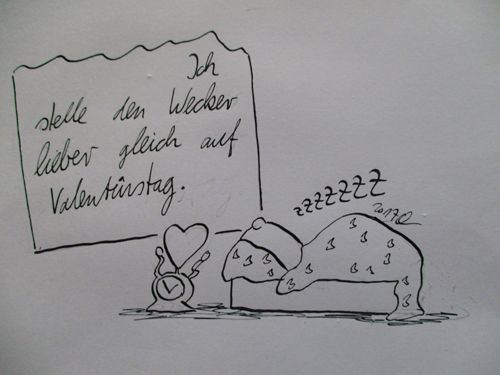 Ich
stelle den Wecker
lieber gleich auf
Valentinstag.
zzZZZZZ
2017